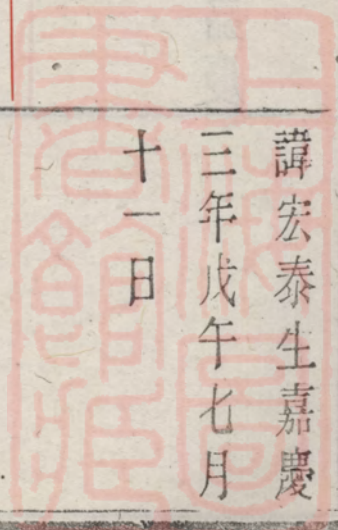 諱宏泰生嘉慶
三年戊午七月
十一日